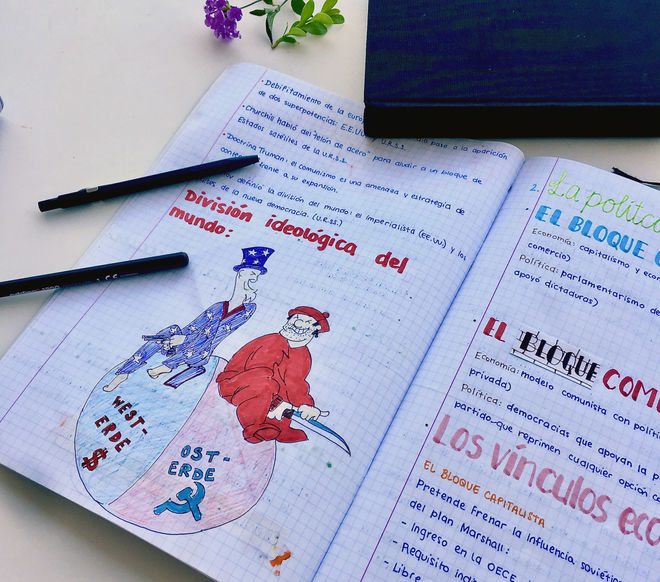 · Debilitamiento de la Euro
de dos superpotencias: E.E.UU paso a la aparición
U.R.S.S.
· Churchis habló del "telón de acero" para aludir a un bloque de
Estados satélites de la U.R.S.S.
· Doctrina Truman: el comunismo es una amenaza y estrategia de
frente a su expansión.
definió la división del mundo: el imperialista (EE.UU) y los
de la nueva democracia. (U.R.SS.)
División ideológica del
mundo:
WEST-
ERDE
$
OST-
ERDE
2. La polític
EL BLOQUE
Economía: capitalismo y econ
comercio)
Política: parlamentarismo de
apoyó dictaduras)
EL BLOQUE COMU
Economía: modelo comunista con políti
privada)
Política: democracias que apoyan la p
partido que reprimen cualquier opción co
Los vínculos eco
EL BLOQUE CAPITALISTA
Pretende frenar la influencia soviétic
del plan Marshall:
- Ingreso en la OECE
- Requisito
- Libre